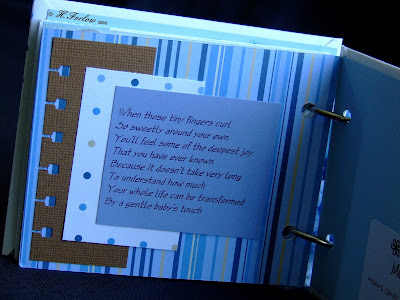 H. Forlow 2009
When those tiny fingers curl
So sweetly around your own
You'll feel some of the deepest joy
That you have ever known
Because it doesn't take very long
To understand how much
Your whole life can be transformed
By a gentle baby's touch